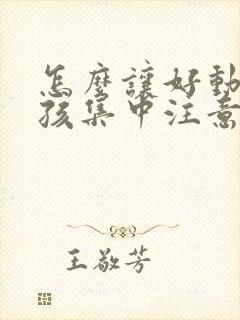 怎麼讓好動
孩集中注意
王敬芳